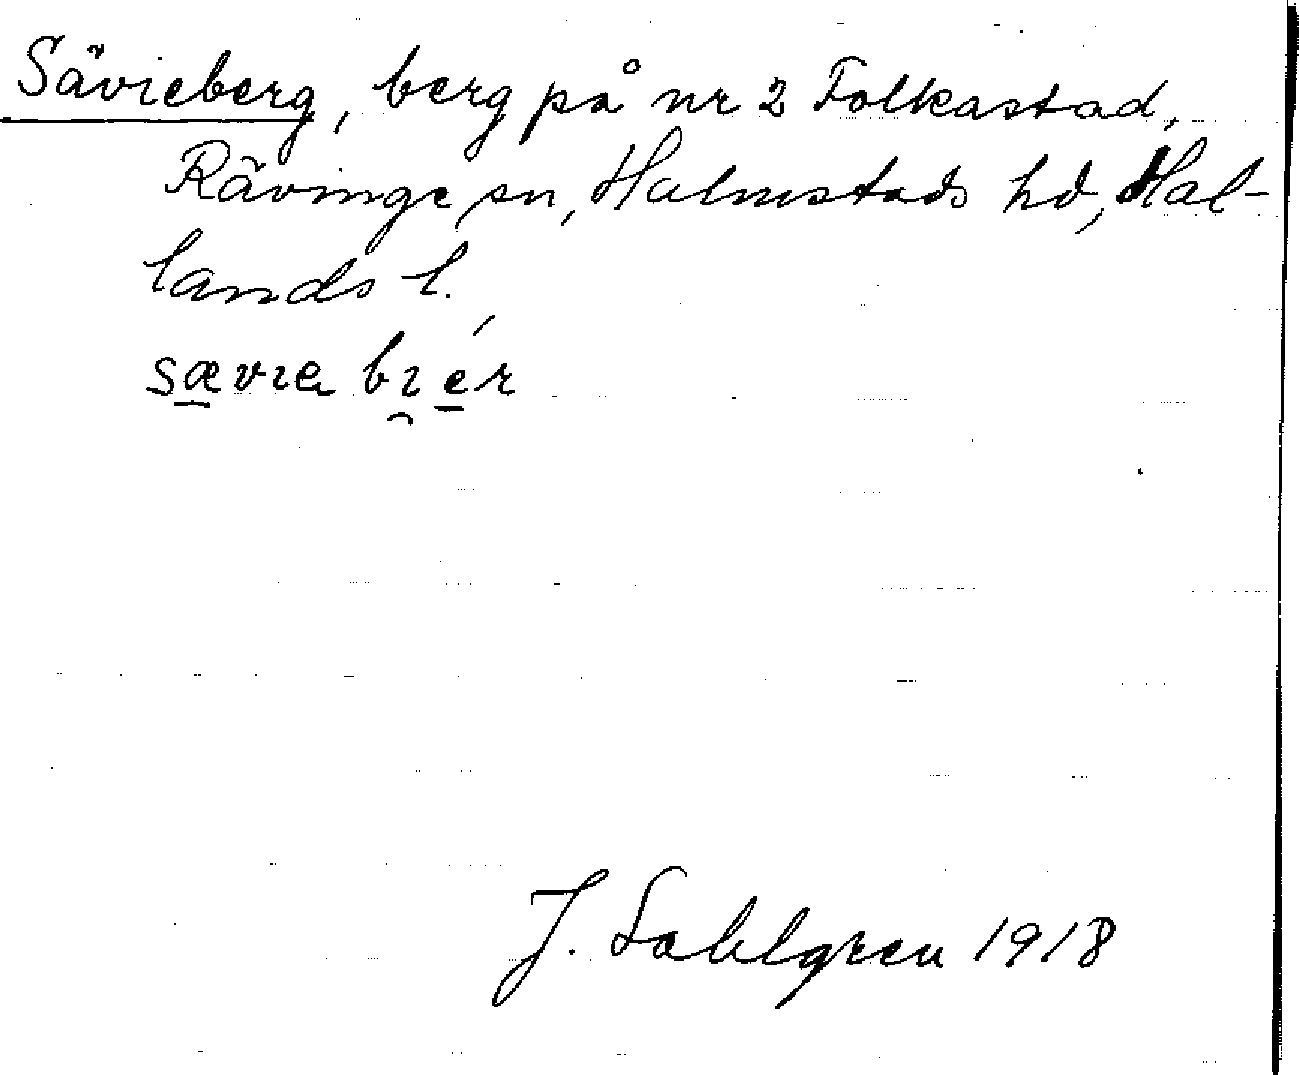 Sävieberg, berg på nr 2 Folkastad,
Rävinge sn, Halmstads hd, Hal-
lands l.
sævıa bı̯ér
J. Sahlgren 1918